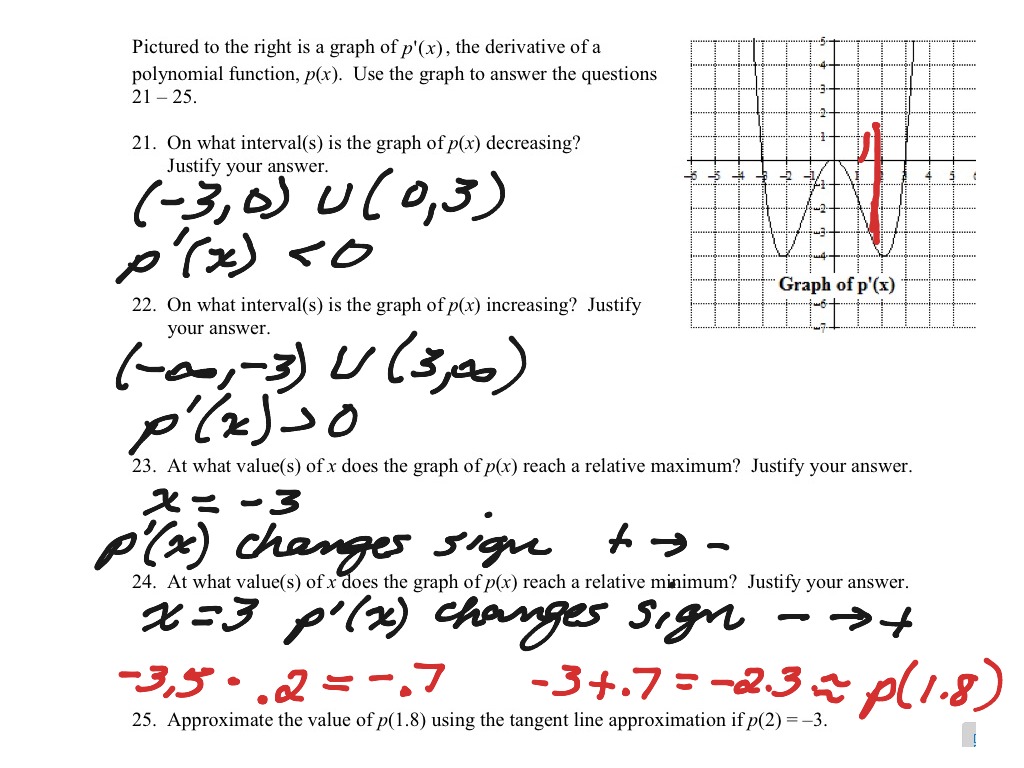 Pictured to the right is a graph of p'(x), the derivative of a
polynomial function, p(x). Use the graph to answer the questions
21 – 25.
21. On what interval(s) is the graph of p(x) decreasing?
Justify your answer.
(-3,0) ∪ (0,3)
p'(x) < 0
5
4
3
2
1
-6 -5 -4 -3 -2 -1 1 2 3 4 5 6
-1
-2
-3
-4
Graph of p'(x)
-6
-7
22. On what interval(s) is the graph of p(x) increasing? Justify
your answer.
(-∞,-3) ∪ (3,∞)
p'(x) > 0
23. At what value(s) of x does the graph of p(x) reach a relative maximum? Justify your answer.
x = -3
p'(x) changes sign + → -
24. At what value(s) of x does the graph of p(x) reach a relative minimum? Justify your answer.
x = 3 p'(x) changes sign - → +
-3.5 · .2 = -.7 -3+.7 = -2.3 ≈ p(1.8)
25. Approximate the value of p(1.8) using the tangent line approximation if p(2) = –3.